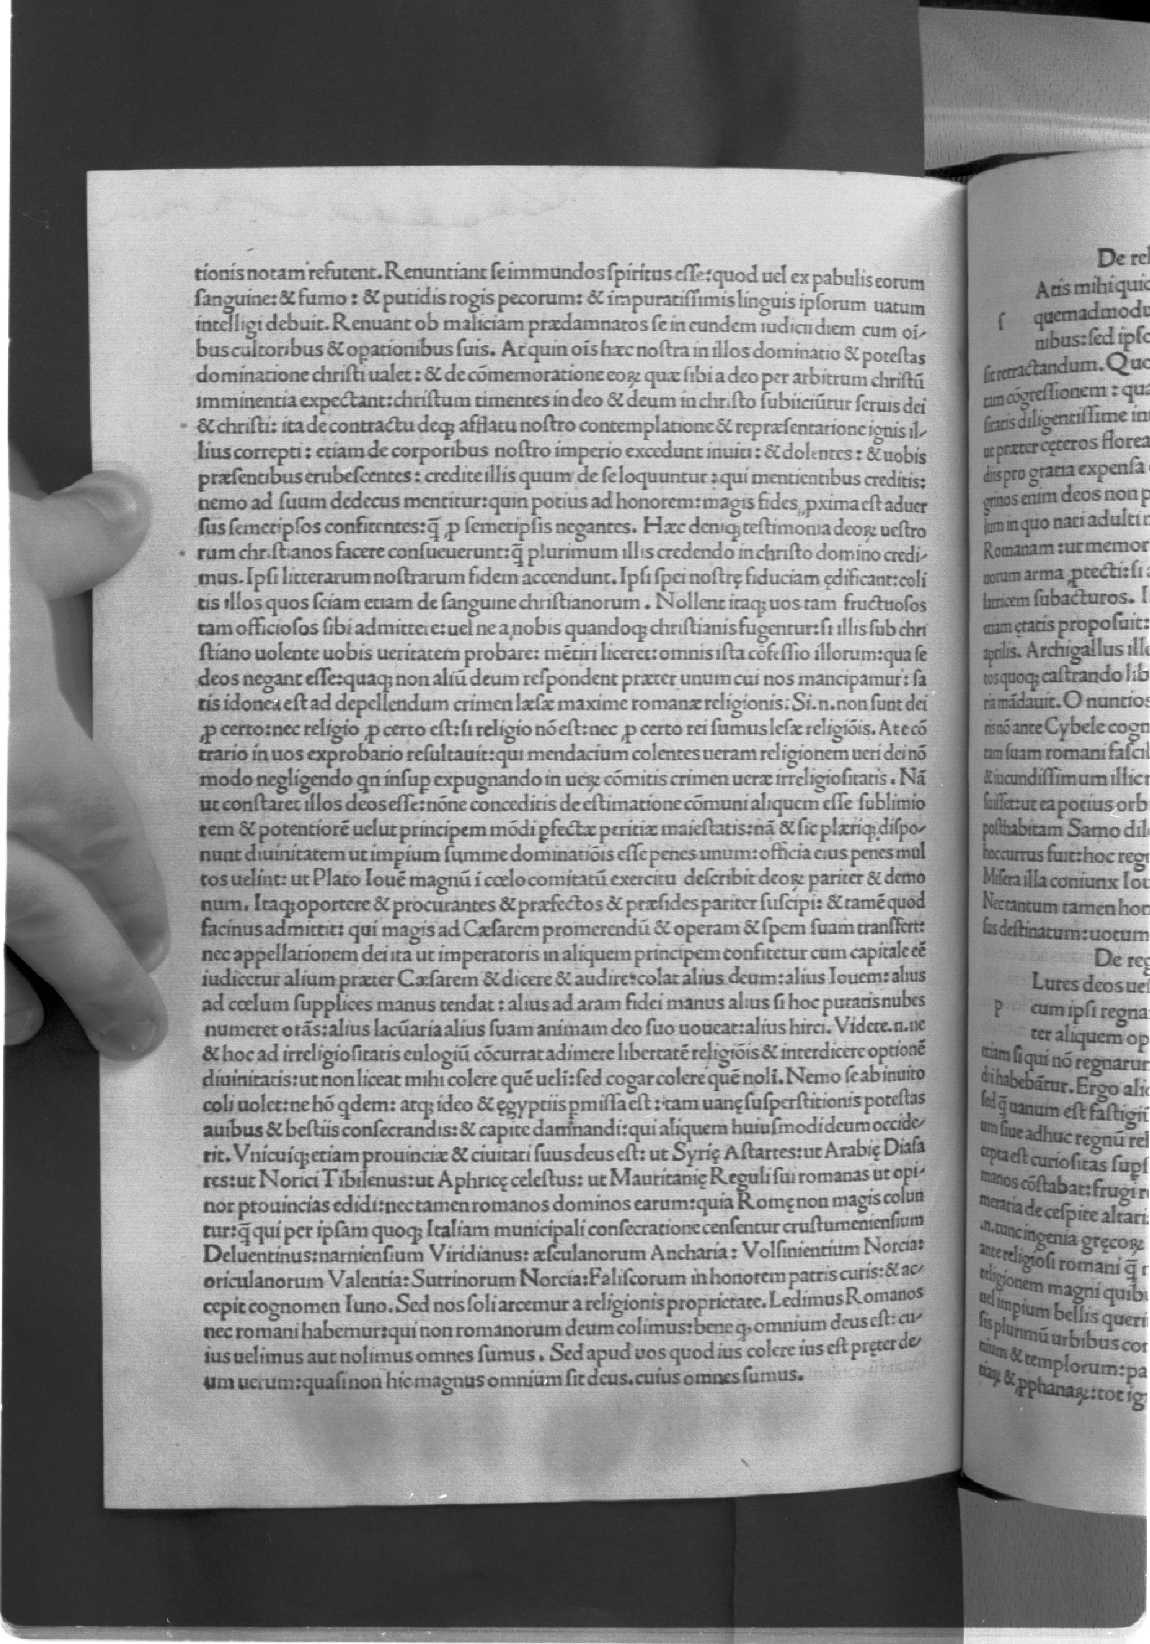 tionis notam refutent. Renuntiant se immundos spiritus esse: quod uel ex pabulis eorum
sanguine: & fumo: & putidis rogis pecorum: & impuratissimis linguis ipsorum uatum
intelligi debuit. Renuant ob maliciam prædamnatos se in eundem iudicii diem cum oī⸗
bus cultoribus & opationibus suis. Atquin oīs hæc nostra in illos dominatio & potestas
dominatione christi ualet: & de cōmemoratione eoꝝ quæ sibi a deo per arbitrum christū
imminentia expectant: christum timentes in deo & deum in christo subiiciūtur seruis dei
& christi: ita de contractu deqꝫ afflatu nostro contemplatione & repræsentatione ignis il⸗
lius correpti: etiam de corporibus nostro imperio excedunt inuiti: & dolentes: & uobis
præsentibus erubescentes: credite illis quum de se loquuntur: qui mentientibus creditis:
nemo ad suum dedecus mentitur: quin potius ad honorem: magis fides ꝓxima est aduer
sus semetipsos confitentes: q̄ ꝓ semetipsis negantes. Hæc deniqꝫ testimonia deoꝝ uestro
rum christianos facere consueuerunt: q̄ plurimum illis credendo in christo domino credi⸗
mus. Ipsi litterarum nostrarum fidem accendunt. Ipsi spei nostrę fiduciam ędificant: coli
tis illos quos sciam etiam de sanguine christianorum. Nollent itaqꝫ uos tam fructuosos
tam officiosos sibi admittere: uel ne a nobis quandoqꝫ christianis fugentur: si illis sub chri
stiano uolente uobis ueritatem probare: mētiri liceret: omnis ista cōfessio illorum: qua se
deos negant esse: quaqꝫ non aliū deum respondent præter unum cui nos mancipamur: sa
tis idonea est ad depellendum crimen læsæ maxime romanæ religionis: Si.n. non sunt dei
ꝓ certo: nec religio ꝓ certo est: si religio nō est: nec ꝓ certo rei sumus lesæ religiōis. At e cō
trario in uos exprobatio resultauit: qui mendacium colentes ueram religionem ueri dei nō
modo negligendo qn insup expugnando in ueꝝ cōmitis crimen ueræ irreligiositatis. Nā
ut constaret illos deos esse: nōne conceditis de estimatione cōmuni aliquem esse sublimio
rem & potentiorē uelut principem mōdi pfectæ peritiæ maiestatis: nā & sic plæriqꝫ dispo⸗
nunt diuinitatem ut impium summe dominatiōis esse penes unum: officia eius penes mul
tos uelint: ut Plato Iouē magnū ī cœlo comitatū exercitu describit deoꝝ pariter & demo
num. Itaqꝫ oportere & procurantes & præfectos & præsides pariter suscipi: & tamē quod
facinus admittit: qui magis ad Cæsarem promerendū & operam & spem suam transfert:
nec appellationem dei ita ut imperatoris in aliquem principem confitetur cum capitale eē
iudicetur alium præter Cæsarem & dicere & audire: colat alius deum: alius Iouem: alius
ad cœlum supplices manus tendat: alius ad aram fidei manus alius si hoc putatis nubes
numeret orās: alius lacūaria alius suam animam deo suo uoueat: alius hirci. Videte.n. ne
& hoc ad irreligiositatis eulogiū cōcurrat adimere libertatē religiōis & interdicere optionē
diuinitatis: ut non liceat mihi colere quē uelī: sed cogar colere quē nolī. Nemo se ab inuito
coli uolet: ne hō qdem: atqꝫ ideo & ęgyptiis pmissa est: tam uanę susperstitionis potestas
auibus & bestiis consecrandis: & capite damnandi: qui aliquem huiusmodi deum occide⸗
rit. Vnicuiqꝫ etiam prouinciæ & ciuitati suus deus est: ut Syrię Astartes: ut Arabię Diasa
res: ut Norici Tibilenus: ut Aphricę celestus: ut Mauritanię Reguli sui romanas ut opi⸗
nor prouincias edidi: nec tamen romanos dominos earum: quia Romę non magis colun
tur: q̄ qui per ipsam quoqꝫ Italiam municipali consecratione censentur crustumeniensium
Deluentinus: narniensium Viridianus: æsculanorum Ancharia: Volsinientium Norcia:
oriculanorum Valentia: Sutrinorum Norcia: Faliscorum in honorem patris curis: & ac⸗
cepit cognomen Iuno. Sed nos soli arcemur a religionis proprietate. Ledimus Romanos
nec romani habemur: qui non romanorum deum colimus: bene q, omnium deus est: cu⸗
ius uelimus aut nolimus omnes sumus. Sed apud uos quod ius colere ius est pręter de⸗
um uerum: quasi non hic magnus omnium sit deus. cuius omnes sumus.
De rel
Atis mihi quid
s quemadmodu
nibus: sed ipso
sit retractandum. Quo
tam cōgressionem: qua
sitatis diligentissime in
ut præter cęteros florea
diis pro gratia expensa
grinos enim deos non p
sum in quo nati adulti
Romanam: ut memor
uorum arma ꝓtecti: si
lumicem subacturos. I
etiam ętatis proposuit:
aprilis. Archigallus ille
tos quoqꝫ castrando lib
ria mādauit. O nuntios
ris nō ante Cybele cogn
tam suam romani fascil
& iucundissimum illic
fuisset: ut ea potius orb
posthabitam Samo dil
hoc currus fuit: hoc reg
Misera illa coniunx Iou
Nec tantum tamen hon
sus destinatum: uotum
De reg
Lures deos uei
p cum ipsi regna
ter aliquem op
etiam si qui nō regnarun
di habebātur. Ergo alic
sed q̄ uanum est fastigiū
um siue adhuc regnū rel
cepta est curiositas supſ
manos cōstabat: frugi r
meraria de cespite altari:
.n. tunc ingenia gręcoꝝ
ante religiosi romani q̄ r
religionem magni quibu
uel impium bellis queri
sis plurimū urbibus cor
tium & templorum: pa
tiaꝝ & ꝓphanaꝝ: tot ig